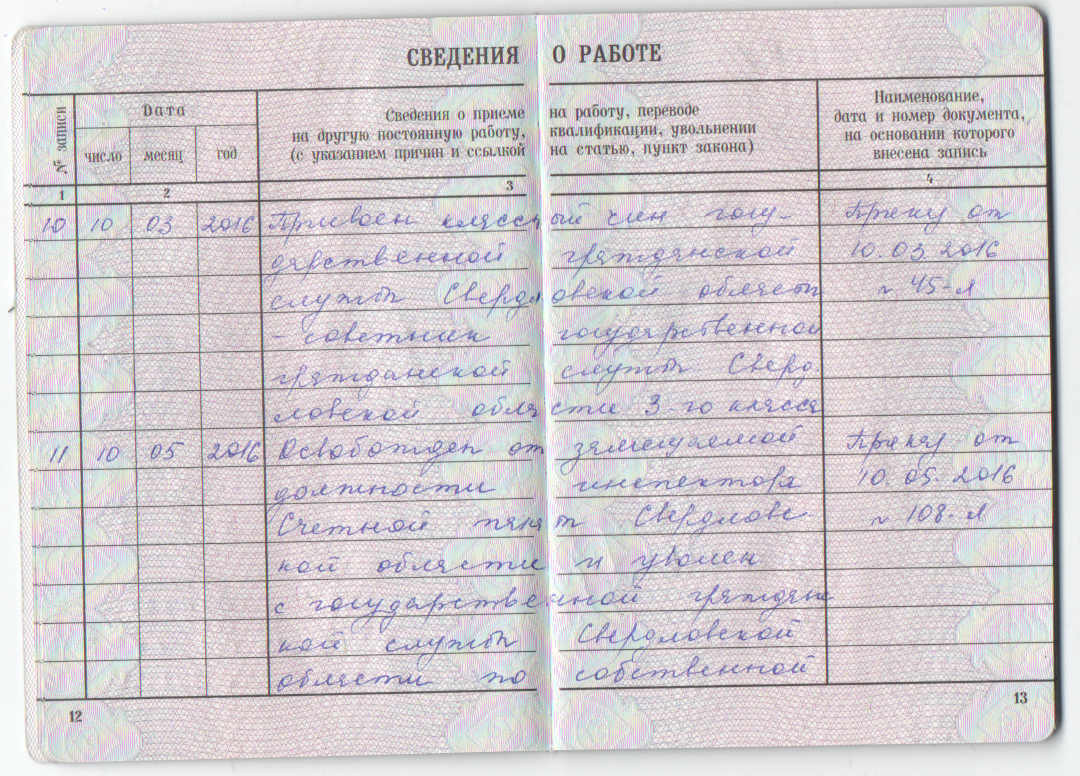 СВЕДЕНИЯ О РАБОТЕ
№ записи
Дата
число месяц год
Сведения о приеме на работу, переводе
на другую постоянную работу, квалификации, увольнении
(с указанием причин и ссылкой на статью, пункт закона)
Наименование,
дата и номер документа,
на основании которого
внесена запись
1 2 3 4
10 10 03 2016 Присвоен классный чин госу- Приказ от
дарственной гражданской 10.03.2016
службы Свердловской области № 45-л
- советник государственной
гражданской службы Сверд
ловской области 3-го класса
11 10 05 2016 Освобожден от замещаемой Приказ от
должности инспектора 10.05.2016
Счетной палаты Свердловс № 108-л
кой области и уволен
с государственной граждан
кой службы Свердловской
области по собственной
12
13